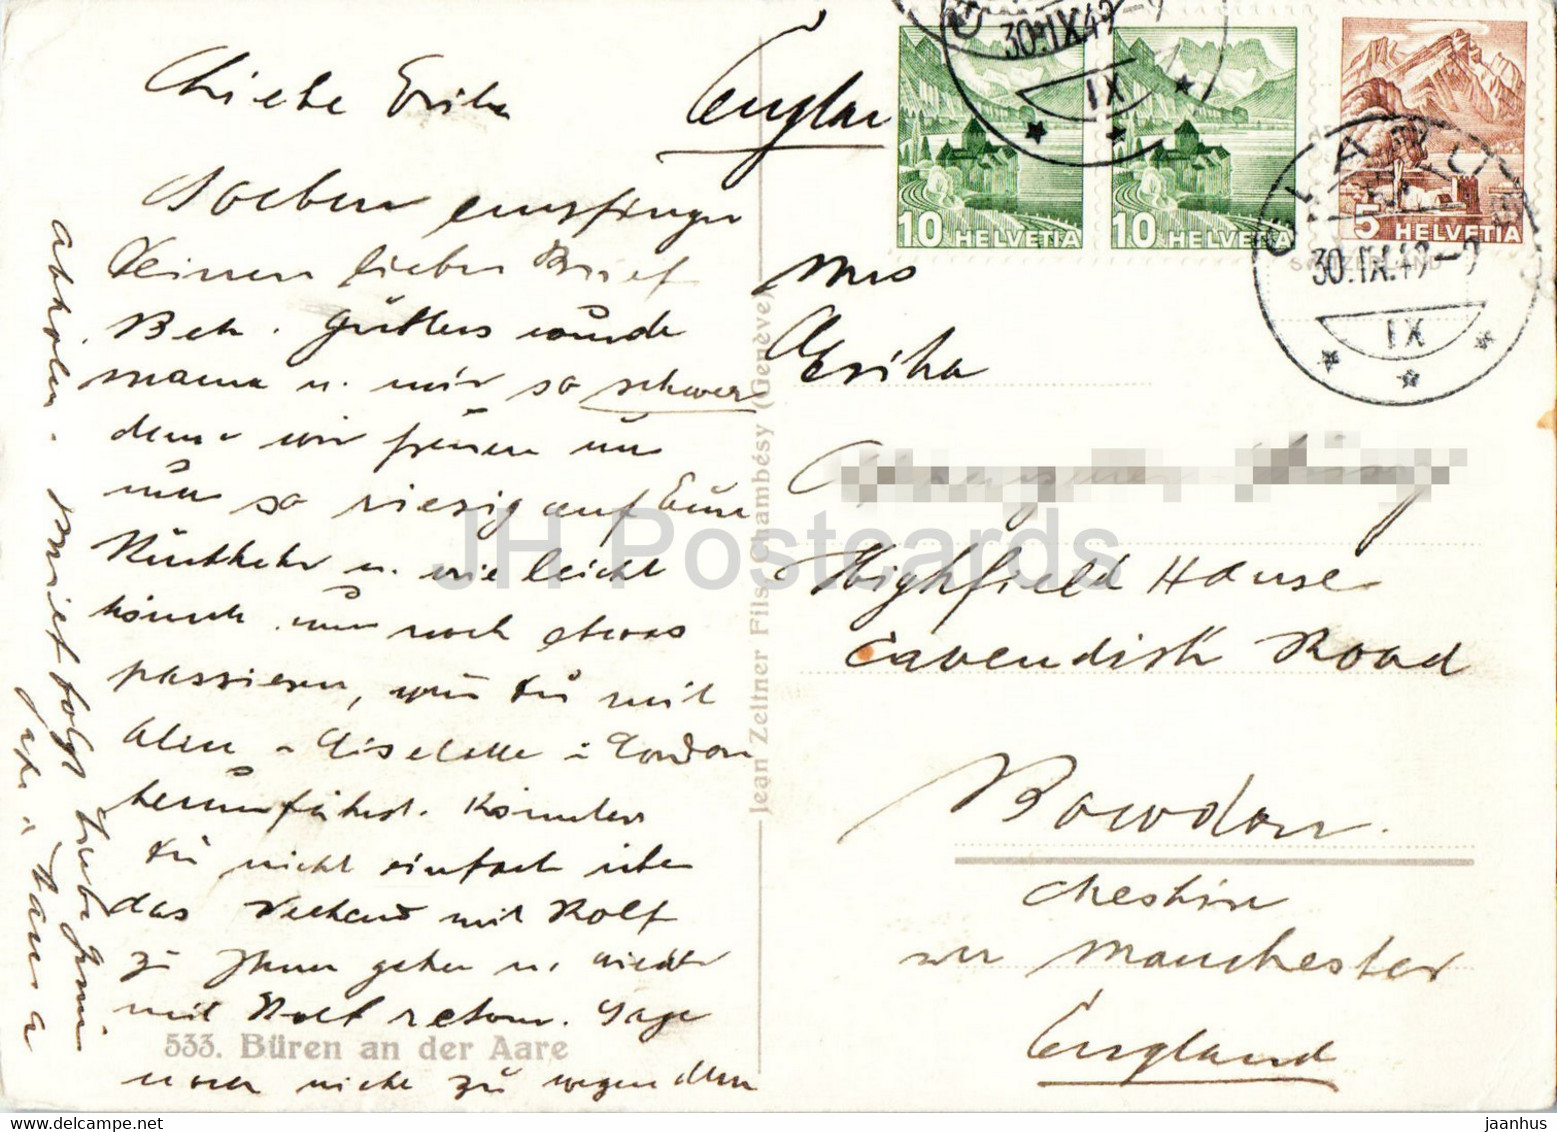 Liebe Erika
Soeben empfingen
Deinen lieben Brief
Betr. Güttlers würde
mama u. mir so schwer
denn wir freuen uns
nun so riesig auf Eure
Rückkehr u. wie leicht
könnte nun noch etwas
passieren, wenn Du mit
Allen Liselotte Gordon
herumfährst. Könntest
Du nicht einfach über
das Weekend mit Rolf
zu Ihnen gehen u. wieder
mit Rolf retour. Sage
aber nicht zu wegen dem
abholen. Brief folgt
Mama
Englan
Mrs
Erika
Highfield House
Cavendish Road
Bowdon
Cheshire
Manchester
England
10 HELVETIA
10 HELVETIA
5 HELVETIA
SWITZERLAND
30.IX.49-9
IX
GLARUS
30.IX.49-9
IX
Jean Zeltner Fils, Chambésy (Genève)
533. Büren an der Aare
JH Postcards
jaanhus